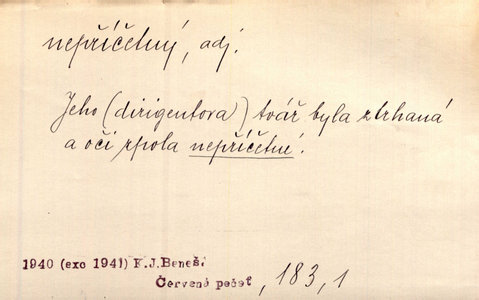 nepříčetný, adj.
Jeho (dirigentova) tvář byla ztrhaná
a oči zpola nepříčetné.
1940 (exc 1941) F.J.Beneš:
Červená pečeť, 183,1